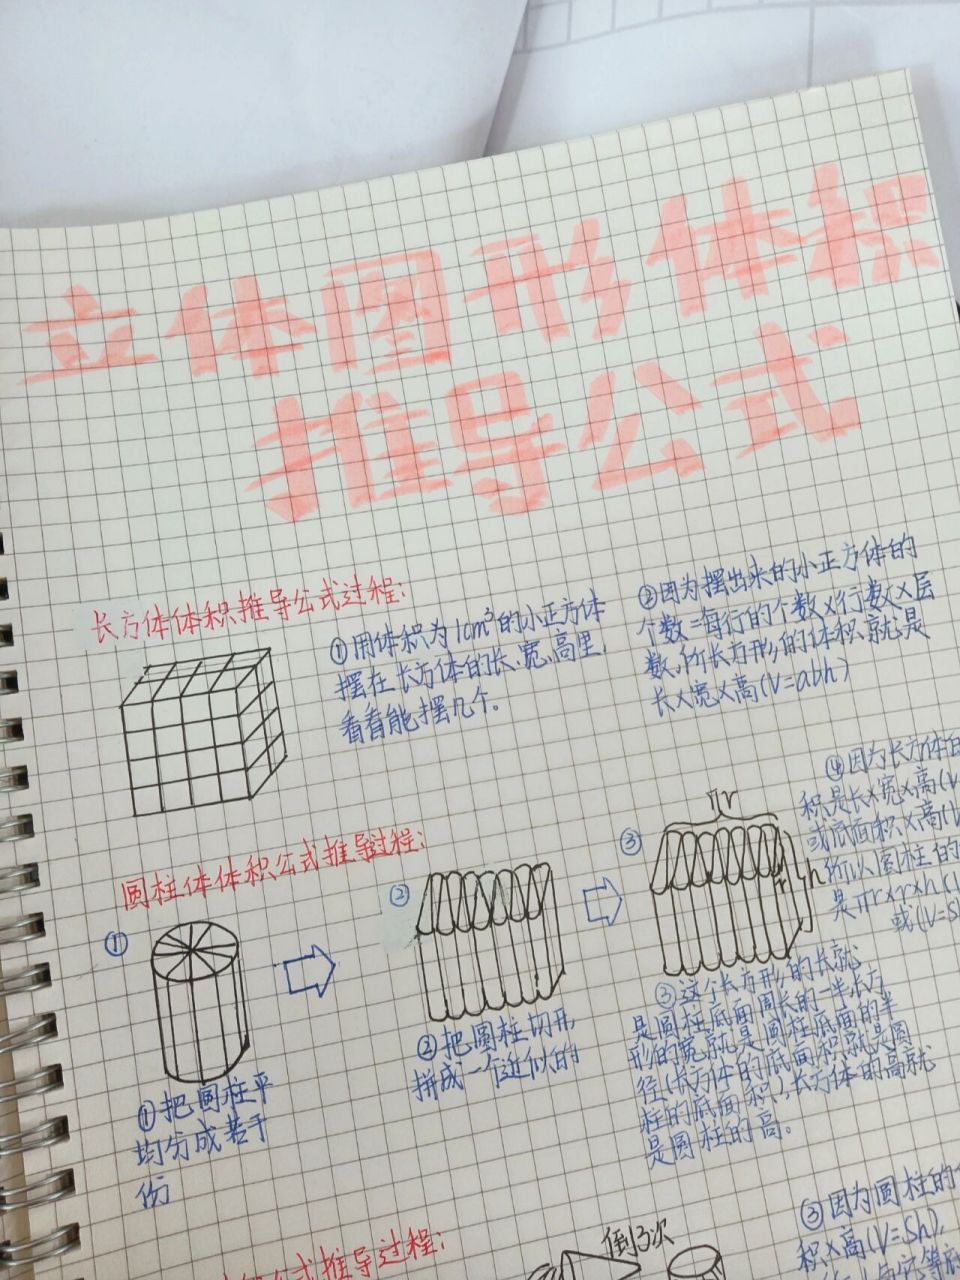 立体图形体积
推导公式
长方体体积推导公式过程:
①用体积为1cm³的小正方体
摆在长方体的长、宽、高里,
看看能摆几个。
②因为摆出来的小正方体的
个数=每行的个数×行数×层
数,所长方形的体积就是
长×宽×高(V=abh)
圆柱体体积公式推导过程:
①
①把圆柱平
均分成若干
份
②
②把圆柱切开,
拼成一个近似的
③
πr
r
h
③这个长方形的长就
是圆柱底面周长的一半,长方
形的宽就是圆柱底面的半
径(长方体的底面积就是圆
柱的底面积),长方体的高就
是圆柱的高。
④因为长方体的
积是长×宽×高(V
或底面积×高(V
所以圆柱的
是πr×r×h(
或(V=S
公式推导过程:
倒3次
③因为圆柱的
积×高(V=Sh),